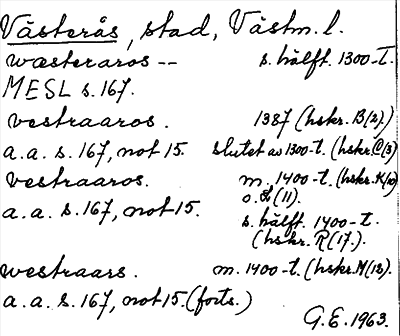 Västerås, stad, Västm. l.
wæsteraros -- s. hälft. 1300-t.
MESL s. 167.
vestraaros. 1387 (hskr. B(2).)
a.a. s. 167, not 15. slutet av 1300-t. (hskr. C(3)
vestraaros. m. 1400-t. (hskr. K(10)
o. L(11).
a.a. s. 167, not 15. s. hälft. 1400-t.
(hskr. R(17.).
westraars. m. 1400-t. (hskr. M(13).
a.a. s. 167, not 15. (forts.)
G.E. 1963.